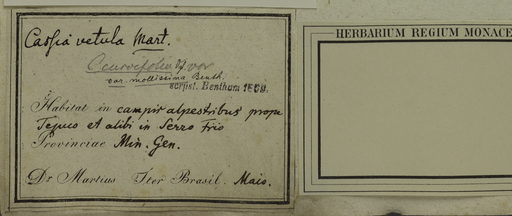 Cassia vetula Mart.
var. mollissima Benth.
scrips. Bentham 1869.
Habitat in campis alpestribus prope
Tejuco et alibi in Serro Frio
Provinciae Min. Gen.
Dr Martius Iter Brasil. Majo.
HERBARIUM REGIUM MONACE